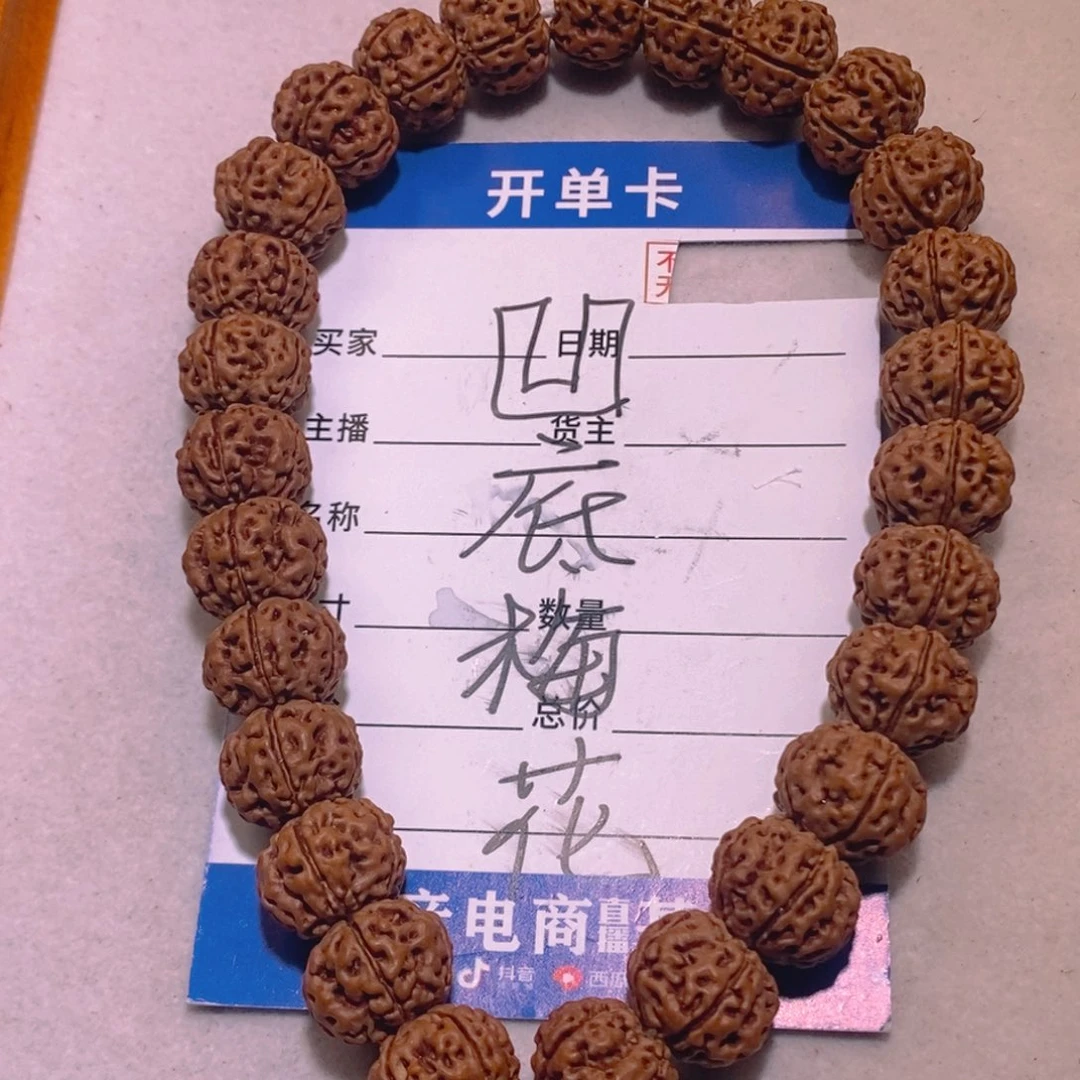 开单卡
买家 日期
主播 货主
名称
寸 数量
总价
凹
底
梅
花
电商直播
抖音 西瓜